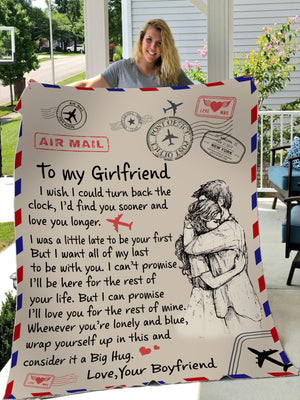 LOVE MAIL
POST OFFICE
NEW YORK
AIR MAIL
To my Girlfriend
I wish I could turn back the
clock, I'd find you sooner and
love you longer.
I was a little late to be your first
But I want all of my last
to be with you. I can't promise
I'll be here for the rest of
your life. But I can promise
I'll love you for the rest of mine.
Whenever you're lonely and blue,
wrap yourself up in this and
consider it a Big Hug.
Love, Your Boyfriend